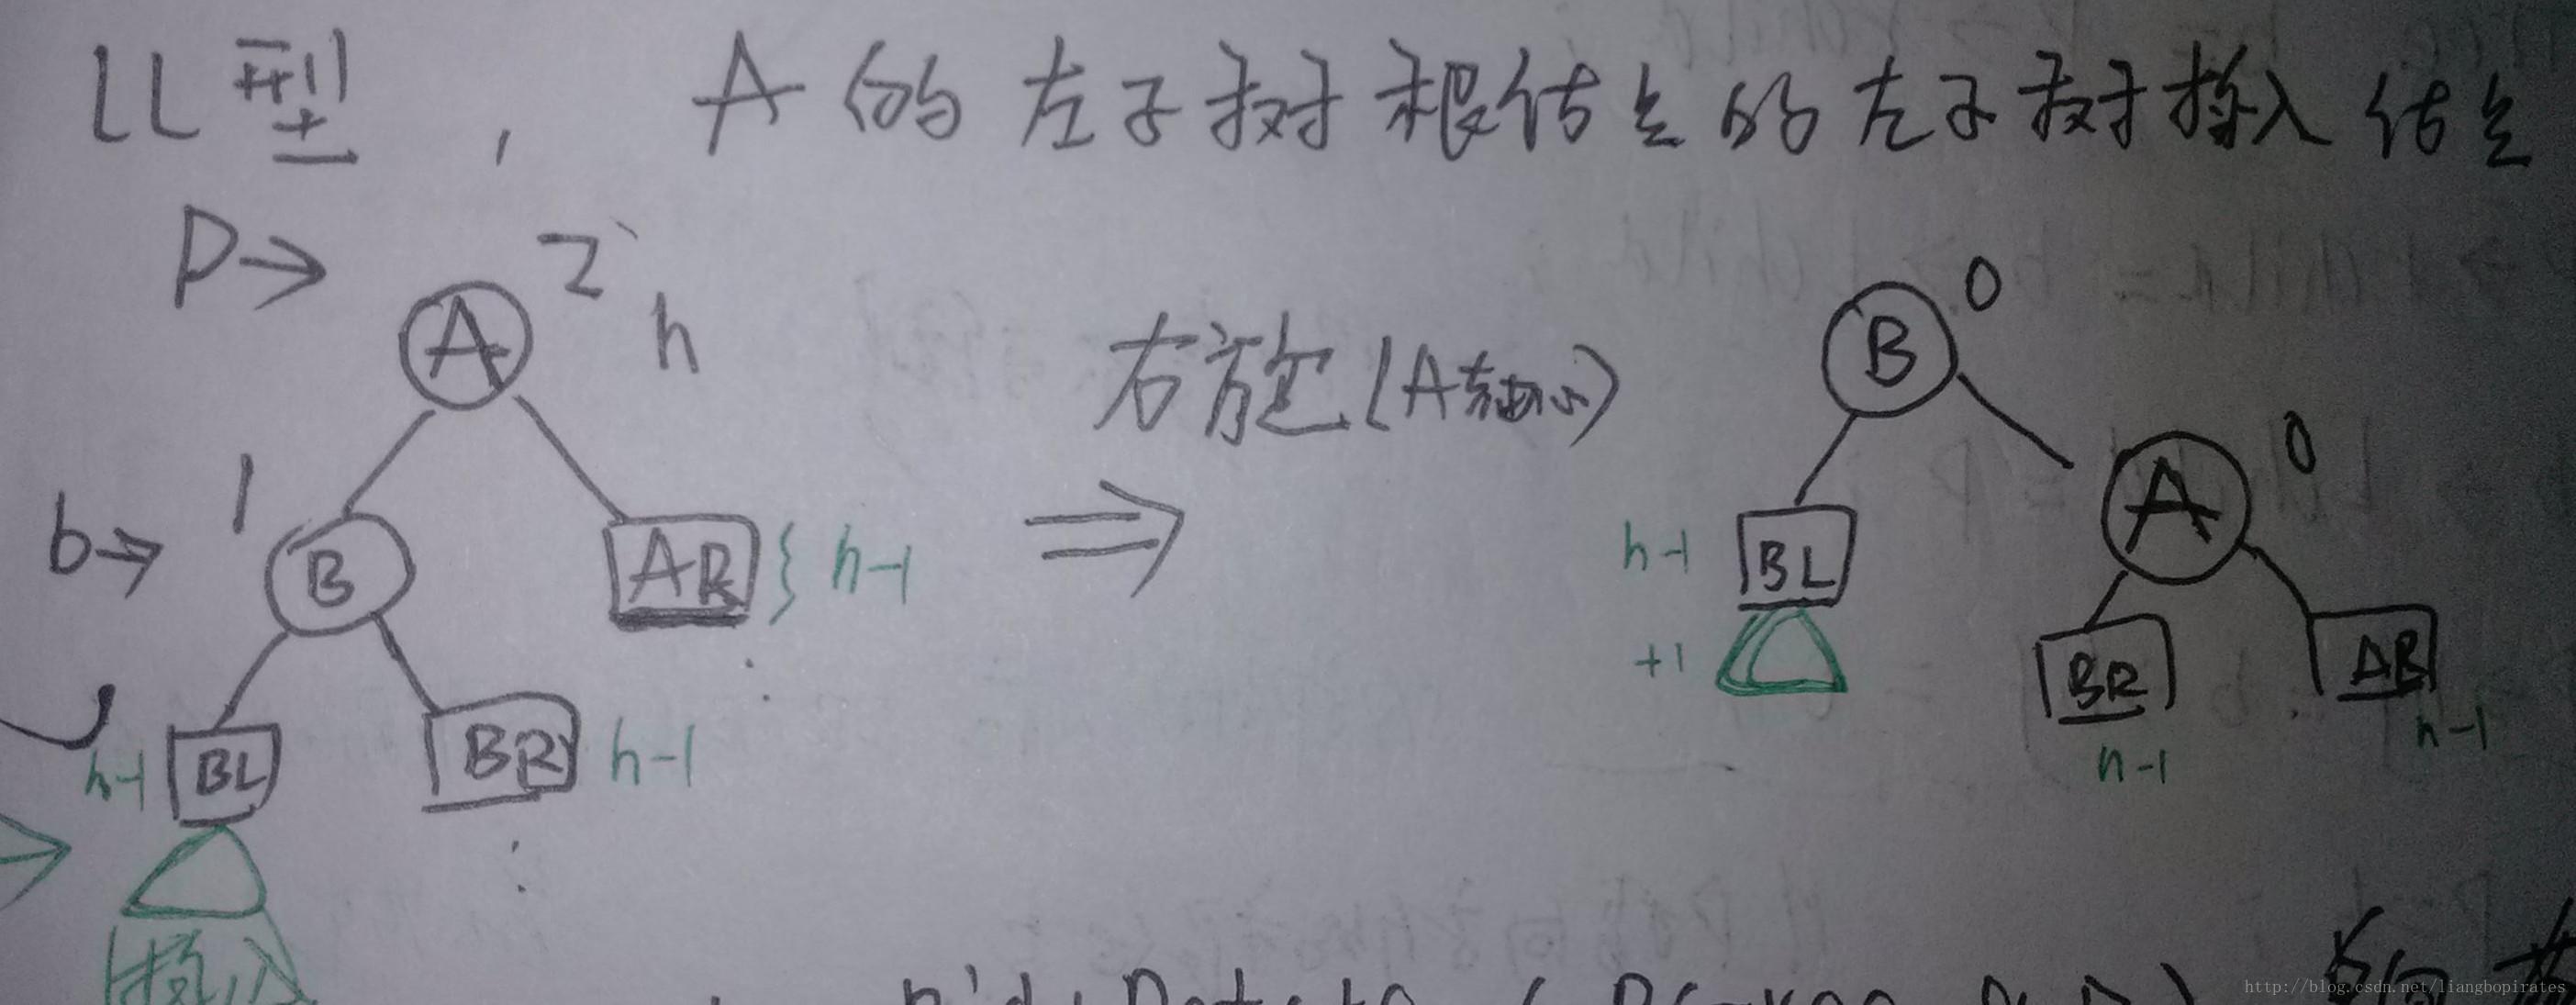 LL型， A的左子树根结点的左子树插入结点
P→
A
2
h
b→
1
B
AR
h-1
h-1
BL
BR
h-1
插入
右旋(A为轴心)
⇒
B
0
A
0
h-1
BL
+1
BR
AR
h-1
h-1
http://blog.csdn.net/liangbopirates